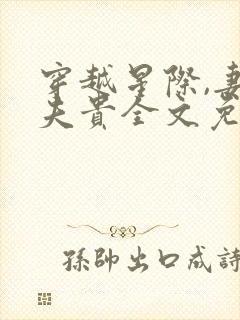 穿越星際,妻
夫貴全文免
孫帥出口成詩